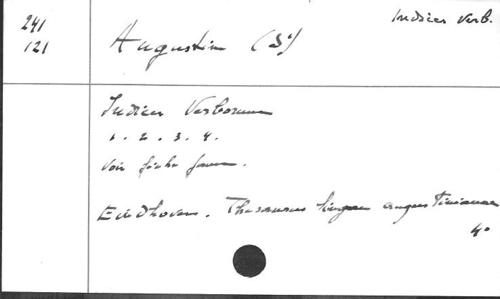 241
121
Indices Verb.
Augustin (St)
Indices Verborum
1. 2. 3. 4.
Voir fiche jaune.
Eindhoven. Thesaurus linguae augustinianae
4°